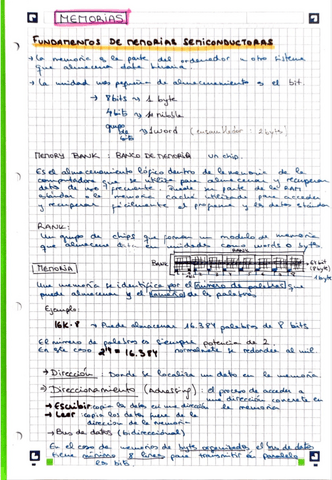 MEMORIAS
FUNDAMENTOS DE MEMORIAS SEMICONDUCTORAS
→ La memoria es la parte del ordenador u otro sistema
que almacena data binaria.
→ La unidad mas pequeña de almacenamiento es el bit.
→ 8 bits → 1 byte
4 bits → 1 nibble
grupo de bits → 1 word ( : 2 bytes)
MEMORY BANK : BANCO DE MEMORIA un chip.
Es el almacenamiento lógico dentro de la memoria de la
computadora que se utiliza para almacenar y recuperar
datos de uso frecuente. Puede ser parte de la RAM
standar o la memoria caché utilizada para acceder
y recuperar fácilmente el programa y los datos standar
RANK:
Un grupo de chips que forman un modulo de memoria
que almacena data en unidades como words o bytes
BANK
RANK
64 bit
(8 byte)
MEMORIA
Una memoria se identifica por el número de palabras que
puede almacenar y el tamaño de la palabra
Ejemplo:
16K·8 → Puede almacenar 16.384 palabras de 8 bits
El número de palabras es siempre potencia de 2.
En este caso 2¹⁴ = 16.384 normalmente se redondea al mil.
→ Dirección: Donde se localiza un dato en la memoria
→ Direccionamiento (adressing) : el proceso de acceder a
una dirección concreta en
la memoria
→ Escribir: copia los datos en una dirección
→ Leer: copia los datos fuera de la
direccion de la memoria
→ Bus de datos (bidireccional)
En el caso de memorias de byte organizadas, el bus de datos
tiene mínimo 8 lineas para transmitir en paralelo
los bits